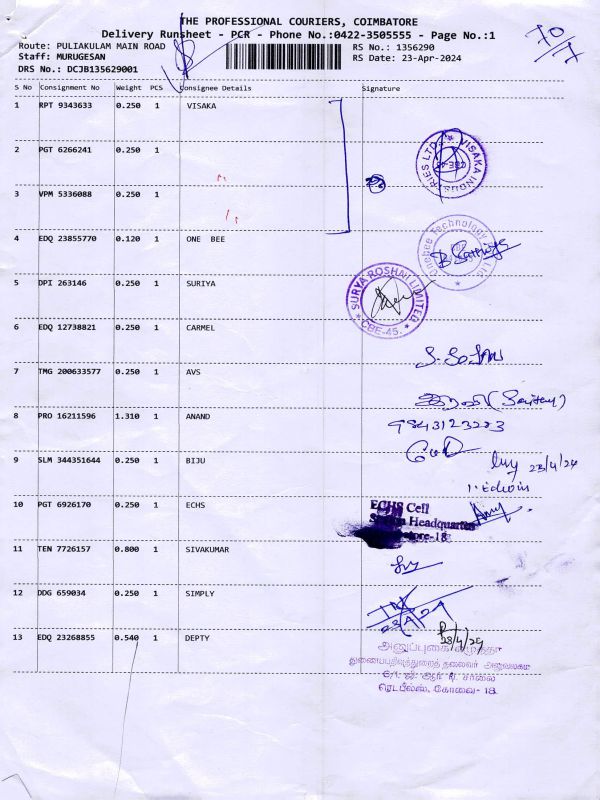 THE PROFESSIONAL COURIERS, COIMBATORE
Delivery Runsheet - PCR - Phone No.:0422-3505555 - Page No.:1
Route: PULIAKULAM MAIN ROAD RS No.: 1356290
Staff: MURUGESAN RS Date: 23-Apr-2024
DRS No.: DCJB135629001
70/7
S No Consignment No Weight PCS Consignee Details Signature
1 RPT 9343633 0.250 1 VISAKA
VISAKA INDUSTRIES LTD. CBE-45
2 PGT 6266241 0.250 1
3 VPM 5336088 0.250 1
4 EDQ 23855770 0.120 1 ONE BEE
Onebee Technology Ltd
5 DPI 263146 0.250 1 SURIYA
SURYA ROSHNI LIMITED * CBE-45. *
6 EDQ 12738821 0.250 1 CARMEL
7 TMG 200633577 0.250 1 AVS
8 PRO 16211596 1.310 1 ANAND
9843123283
9 SLM 344351644 0.250 1 BIJU
23/4/24
10 PGT 6926170 0.250 1 ECHS
ECHS Cell
Station Headquarter
11 TEN 7726157 0.800 1 SIVAKUMAR
12 DDG 659034 0.250 1 SIMPLY
13 EDQ 23268855 0.540 1 DEPTY
23/4/24
துணைப்பதிவுத்துறைத் தலைவர் அலுவலகம்
ரெட்பீல்ஸ், கோவை- 18